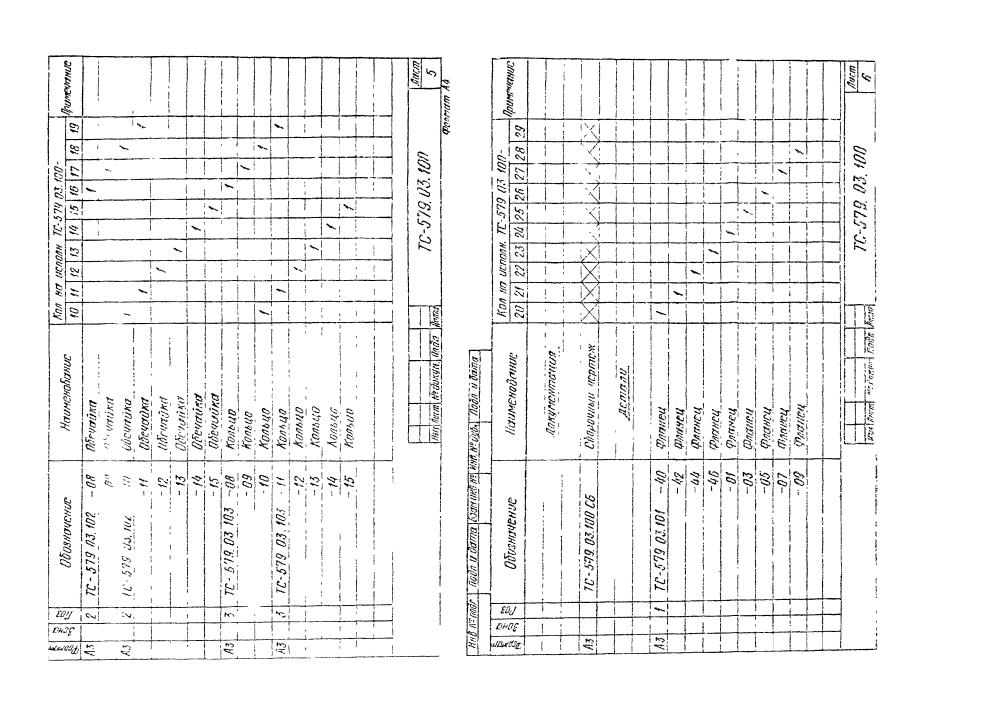 Формат Зона Поз Обозначение Наименование Кол на исполн. ТС-579 03.100- Примечание
10 11 12 13 14 15 16 17 18 19
А3 2 ТС-579 03.102 -08 Обечайка 1
1
А3 2 ТС-579 03.102 Обечайка 1 1
-11 Обечайка 1 1
-12 Обечайка 1
-13 Обечайка 1
-14 Обечайка 1
-15 Обечайка 1
А3 3 ТС-579 03 103 -08 Кольцо 1
-09 Кольцо 1
-10 Кольцо 1 1
А3 3 ТС-579 03.103 -11 Кольцо 1 1
-12 Кольцо 1
-13 Кольцо 1
-14 Кольцо 1
-15 Кольцо 1
Изм Лист № докум. Подп Дата
ТС-579.03.100
Лист
5
Формат А4
Инв № подл Подп и дата Взам инв № Инв № дубл Подп и дата
Формат Зона Поз Обозначение Наименование Кол на исполн. ТС-579 03 100- Примечание
20 21 22 23 24 25 26 27 28 29
Документация
А3 ТС-579 03.100 СБ Сборочный чертеж
Детали
А3 1 ТС-579 03.101 -40 Фланец 1
-42 Фланец 1
-44 Фланец 1
-46 Фланец 1
-01 Фланец 1
-03 Фланец 1
-05 Фланец 1
-07 Фланец 1
-09 Фланец 1
ТС-579.03.100
Лист
6